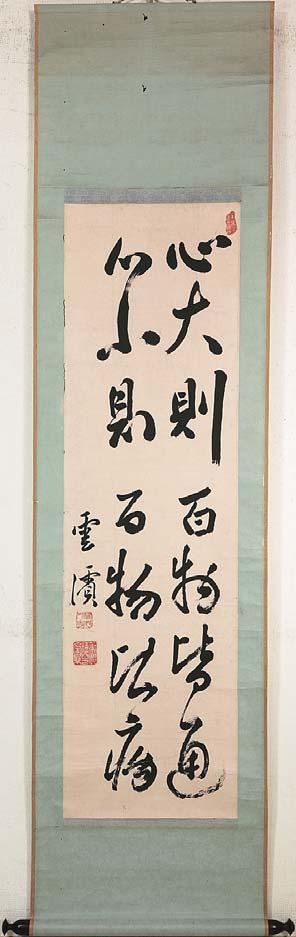 心大則百物皆通
心小則百物皆病
雲濱